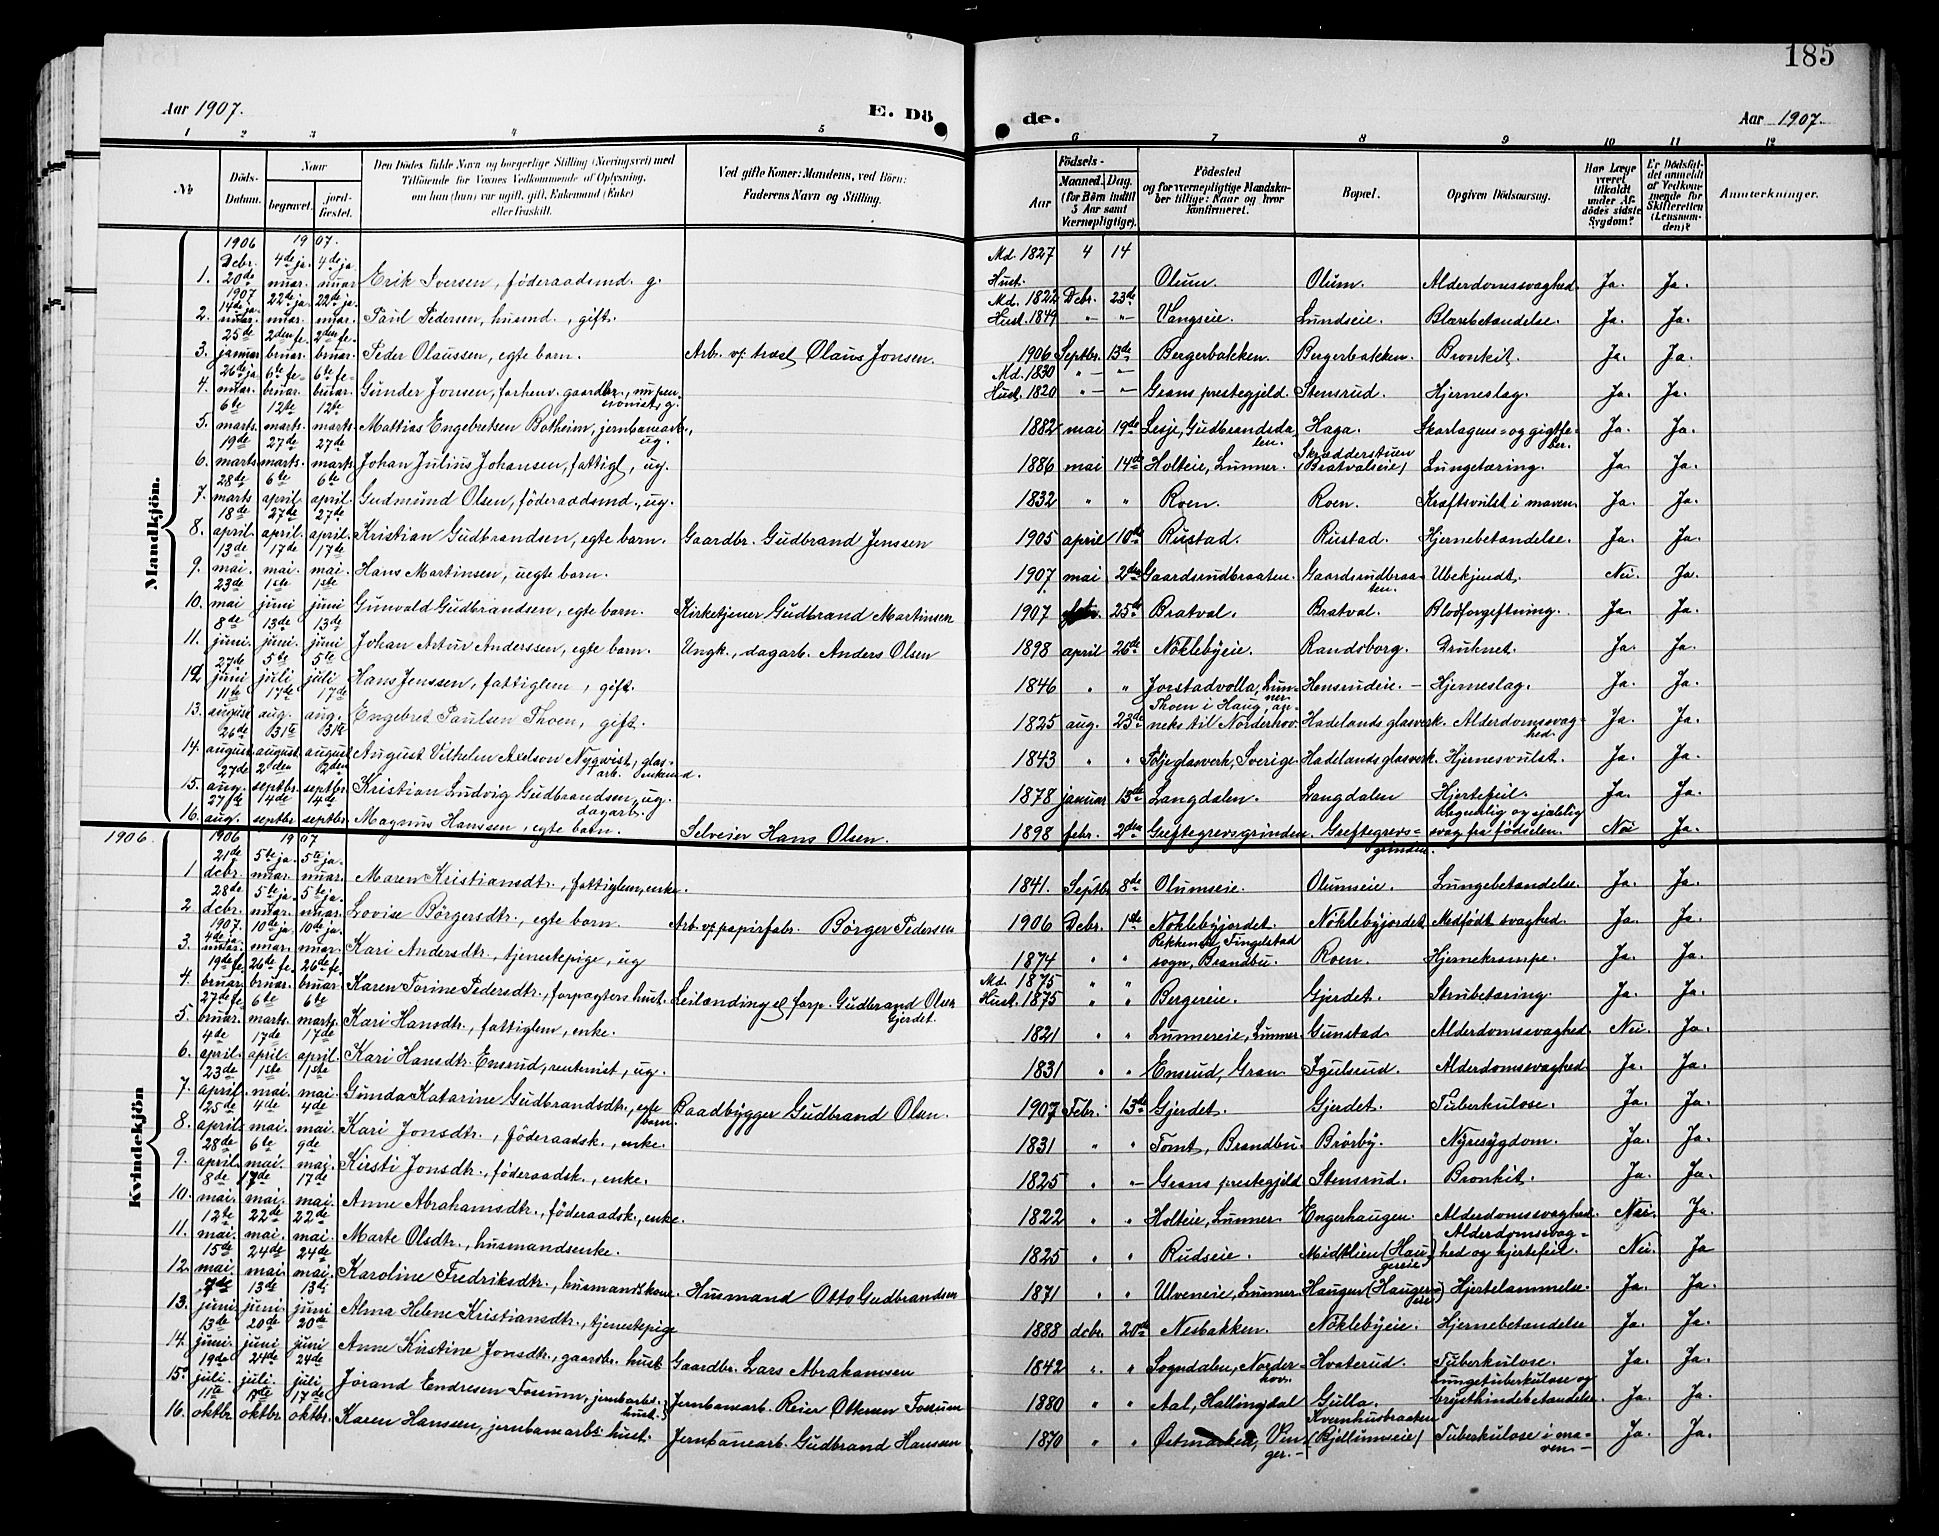 185
Aar 1907. E. Dö
de. Aar 1907.
1 2 3 4 5 6 7 8 9 10 11 12
No Döds-Datum. Naar begravet. jordfæstet. Den Dödes fulde Navn og borgerlige Stilling (Næringsvei) med Tilföiende for Voxnes Vedkommende af Oplysning, om han (hun) var ugift, gift, Enkemand (Enke) eller fraskilt. Ved gifte Koner: Mandens, ved Börn: Faderens Navn og Stilling.
Födsels- Aar Maaned. Dag. (for Börn indtil 5 Aar samt Værnepligtige). Födested og for værnepligtige Mandskaber tillige: Naar og hvor konfirmeret. Bopæl. Opgiven Dödsaarsag. Har Læge været tilkaldt under Afdödes sidste Sygdom? Er Dödsfaldet anmeldt af Vedkommende for Skifteretten (Lensmanden)? Anmærkninger.
Mandkjön.
1906 1907.
1. Debr. 20de 4de januar 4de januar Erik Iversen, föderaadsmd. g. Md. 1827 4 14 Hust. Olum. Olum. Alderdomssvaghed. Ja. Ja.
1907
2. 14de januar 22de januar. 22de januar. Paul Pedersen, husmd., gift. Md. 1822 Debr. 23de Hust. 1849 " " Vangseie. Lundseie. Blærebetændelse. Ja. Ja.
3. 25de januar 2den februar. 2den februar. Peder Olaussen, egte barn. Arb. v/ træsl. Olaus Jonsen. 1906 Septbr. 13de Bergerbakken. Bergerbakken. Bronkit. Ja. Ja.
4. 26de januar. 6te februar. 6te februar. Gunder Jonsen, forhenv. gaardbr., nu pensionist, g. Md. 1830 Hust. 1820 " " Grans prestegjeld. Stensrud. Hjerneslag. Ja. Ja.
5. 6te marts. 12te marts. 12te marts. Mattias Engebretsen Botheim, jernbanearb., ug. 1882 mai 19de Lesje, Gudbrandsdalen. Haga. Skarlagens- og gigtfeber. Ja. Ja.
6. 19de marts 27de marts. 27de marts Johan Julius Johansen, fattigl., ug. 1886 mai 14de Holteie, Lunner. Skrædderstuen (Bratvalseie) Lungetæring. Ja. Ja.
7. 28de marts 6te april. 6te april. Gudmund Olsen, föderaadsmd., ug. 1832 " " Roen. Roen. Kræftsvulst i maven. Ja. Ja.
8. 18de april. 27de april. 27de april. Kristian Gudbrandsen, egte barn. Gaardbr. Gudbrand Jenssen 1905 april 10de Rustad. Rustad. Hjernebetændelse. Ja. Ja.
9. 13de mai. 17de mai. 17de mai Hans Martinsen, uegte barn. 1907. mai 2den Gaardsrudbraaten. Gaardsrudbraaten. Ubekjendt. Nei. Ja.
10. 23de mai 1ste juni 1ste juni Gunvald Gudbrandsen, egte barn. Kirketjener Gudbrand Martinsen 1907 25de Bratval. Bratval. Blodforgiftning. Ja. Ja.
11. 8de juni. 13de juni. 13de juni Johan Artur Anderssen, egte barn. Ungk., dagarb. Anders Olsen 1898 april 26de Nöklebyeie. Randsborg. Druknet. Ja. Ja.
12 27de juni 5te juli 5te juli Hans Jenssen, fattiglem, gift. 1846 " " Jorstadvolla, Lunner. Hensrudeie. Hjerneslag. Ja. Ja.
13. 11te august 17de aug. 17de aug. Engebret Paulsen Thoen, gift. 1825 aug. 23de Thoen i Haug, anneks til Norderhov. Hadelands glasverk. Alderdomssvaghed. Ja. Ja.
14. 26de august. 31te august 31te august August Vilhelm Axelson Nyqvist, glasarb. enkemd. 1843 " " Föjeglasverk, Sverige. Hadelandsglasverk. Hjernesvulst. Ja. Ja.
15. 27de aug. 2den septbr. 2den septbr. Kristian Ludvig Gudbrandsen, ug. dagarb. 1878 januar 15de Langdalen. Langdalen Hjertefeil. Ja. Ja.
16. 27de aug. 14de septbr. 14de septbr. Magnus Hanssen, egte barn. Selveier Hans Olsen. 1898 febr. 2den Greftegrevsgrinden. Greftegrevsgrinden. Legemlig og sjælelig svag fra födselen. Nei Ja.
Kvindekjön
1906 1906 1907
1 21de debr. 5te januar. 5te januar. Maren Kristiansdtr., fattiglem, enke. 1841. Septbr 8de Olumseie. Olumseie. Lungebetændelse. Ja. Ja.
2 28de debr. 5te januar. 5te januar. Lovise Börgersdtr., egte barn. Arb. v/ papirfabr. Börger Pedersen 1906 Debr. 1ste Nöklebyjordet. Nöklebyjordet. Medfödt svaghed. Ja. Ja.
1907.
3. 4de januar. 10de januar. 10de januar. Kari Andersdtr., tjenestepige, ug 1874 " " Tingelstad sogn, Brandbu. Roen. Hjernekrampe. Ja. Ja.
4. 19de februar. 26de februar. 26de februar. Karen Torine Pedersdtr., forpagters hust. Leilænding el. forp. Gudbrand Olsen Gjerdet. Md. 1875 Hust. 1875 " " Bergereie. Gjerdet. Strubetæring. Ja. Ja.
5. 27de februar. 6te marts. 6te marts. Kari Hansdtr., fattiglem, enke. 1821 " " Lunnereie, Lunner Gunstad Alderdomssvaghed Nei. Ja.
6. 4de april 17de april. 17de april. Kari Hansdtr. Ensrud, rentenist, ug. 1831 " " Ensrud, Gran Igulsrud. Alderdomssvaghed Ja. Ja.
7. 23de april. 1ste mai 1ste mai. Gunda Katarine Gudbrandsdtr., egte barn. Baadbygger Gudbrand Olsen. 1907 Febr. 13de Gjerdet. Gjerdet. Tuberkulose. Ja. Ja.
8. 25de april. 4de mai. 4de mai. Kari Jonsdtr., föderaadsk., enke. 1831 " " Tomt, Brandbu. Brörby. Nyresygdom. Ja. Ja.
9. 28de april. 6te mai. 9de mai. Kirsti Jonsdtr., föderaadsk., enke. 1825 " " Grans prestegjeld Stensrud. Bronkit. Ja. Ja.
10. 8de mai. 17de mai. 17de mai. Anne Abrahamsdtr., föderaadsk., enke. 1822 " " Holteie, Lunner Engerhaugen. Alderdomssvaghed. Nei. Ja.
11. 12te mai. 22de mai. 22de mai. Marte Olsdtr., husmandsenke. 1825 " " Rudseie. Midtlien (Haugereie) Alderdomssvaghed og hjertefeil. Nei. Ja
12. 15de mai 24de mai. 24de mai. Karoline Fredriksdtr., husmandskone. Husmand Otto Gudbrandsen 1871 " " Ulveneie, Lunner. Haugen (Haugereie) Hjertelammelse. Ja. Ja.
13. 7de juni 13de juni 13de juni Alma Helene Kristiansdtr., tjenestepige 1888 debr. 20de Nesbakken. Nöklebyeie. Hjernebetændelse Ja. Ja.
14. 13de juni. 20de juni 20de juni Anne Kirstine Jonsdtr., gaardbr. hust. Gaardbr. Lars Abrahamsen 1842 " " Sogndalen, Norderhov. Hvaterud. Tuberkulose. Ja. Ja.
15. 19de juli. 24de juli. 24de juli. Jörand Endresen Fossum, jernbarbs. hust. Jernbanearb. Reier Ottesen Fossum 1880 " " Aal, Hallingdal Gulla. Lungetuberkulose og brysthindebetændelse. Ja. Ja.
16. 11te oktbr. 17de oktbr. 17de oktbr. Karen Hanssen, jernbanearbs. hust. Jernbanearb. Gudbrand Hanssen 1870 " " Östmarken, Vinger. Kvernhusbraaten (Bjellumseie) Tuberkulose i maven. Ja. Ja.